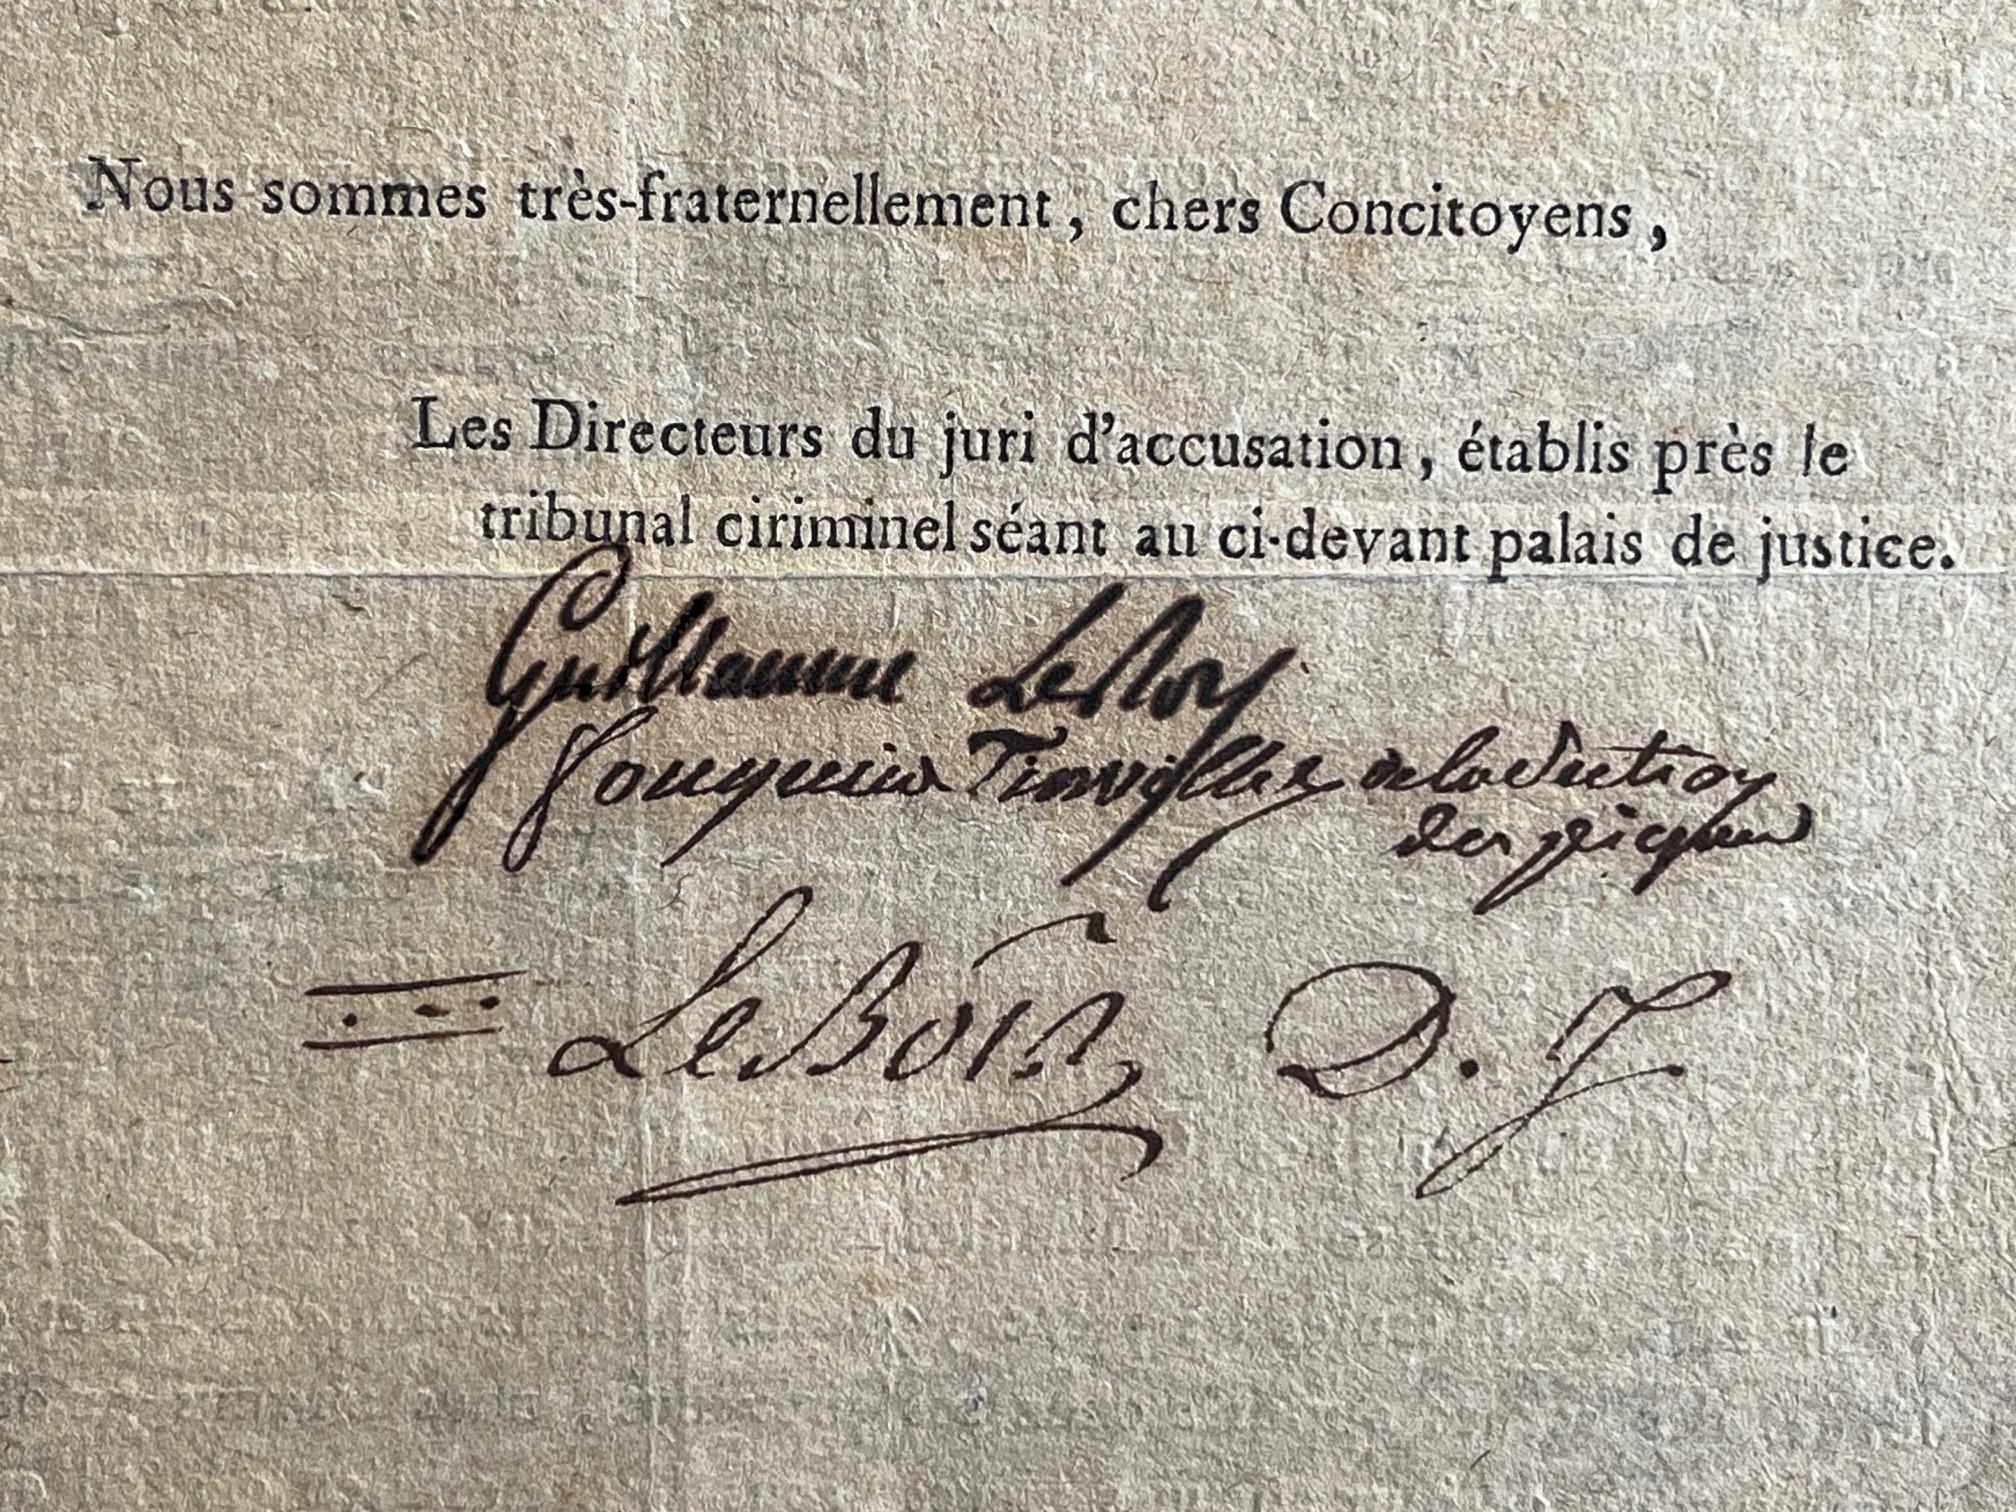 Nous sommes très-fraternellement, chers Concitoyens,
Les Directeurs du juri d'accusation, établis près le
tribunal ciriminel séant au ci-devant palais de justice.
Guillaume LeRoy
Fouquier Tinville de la Section
des piques
LeBois D. J.